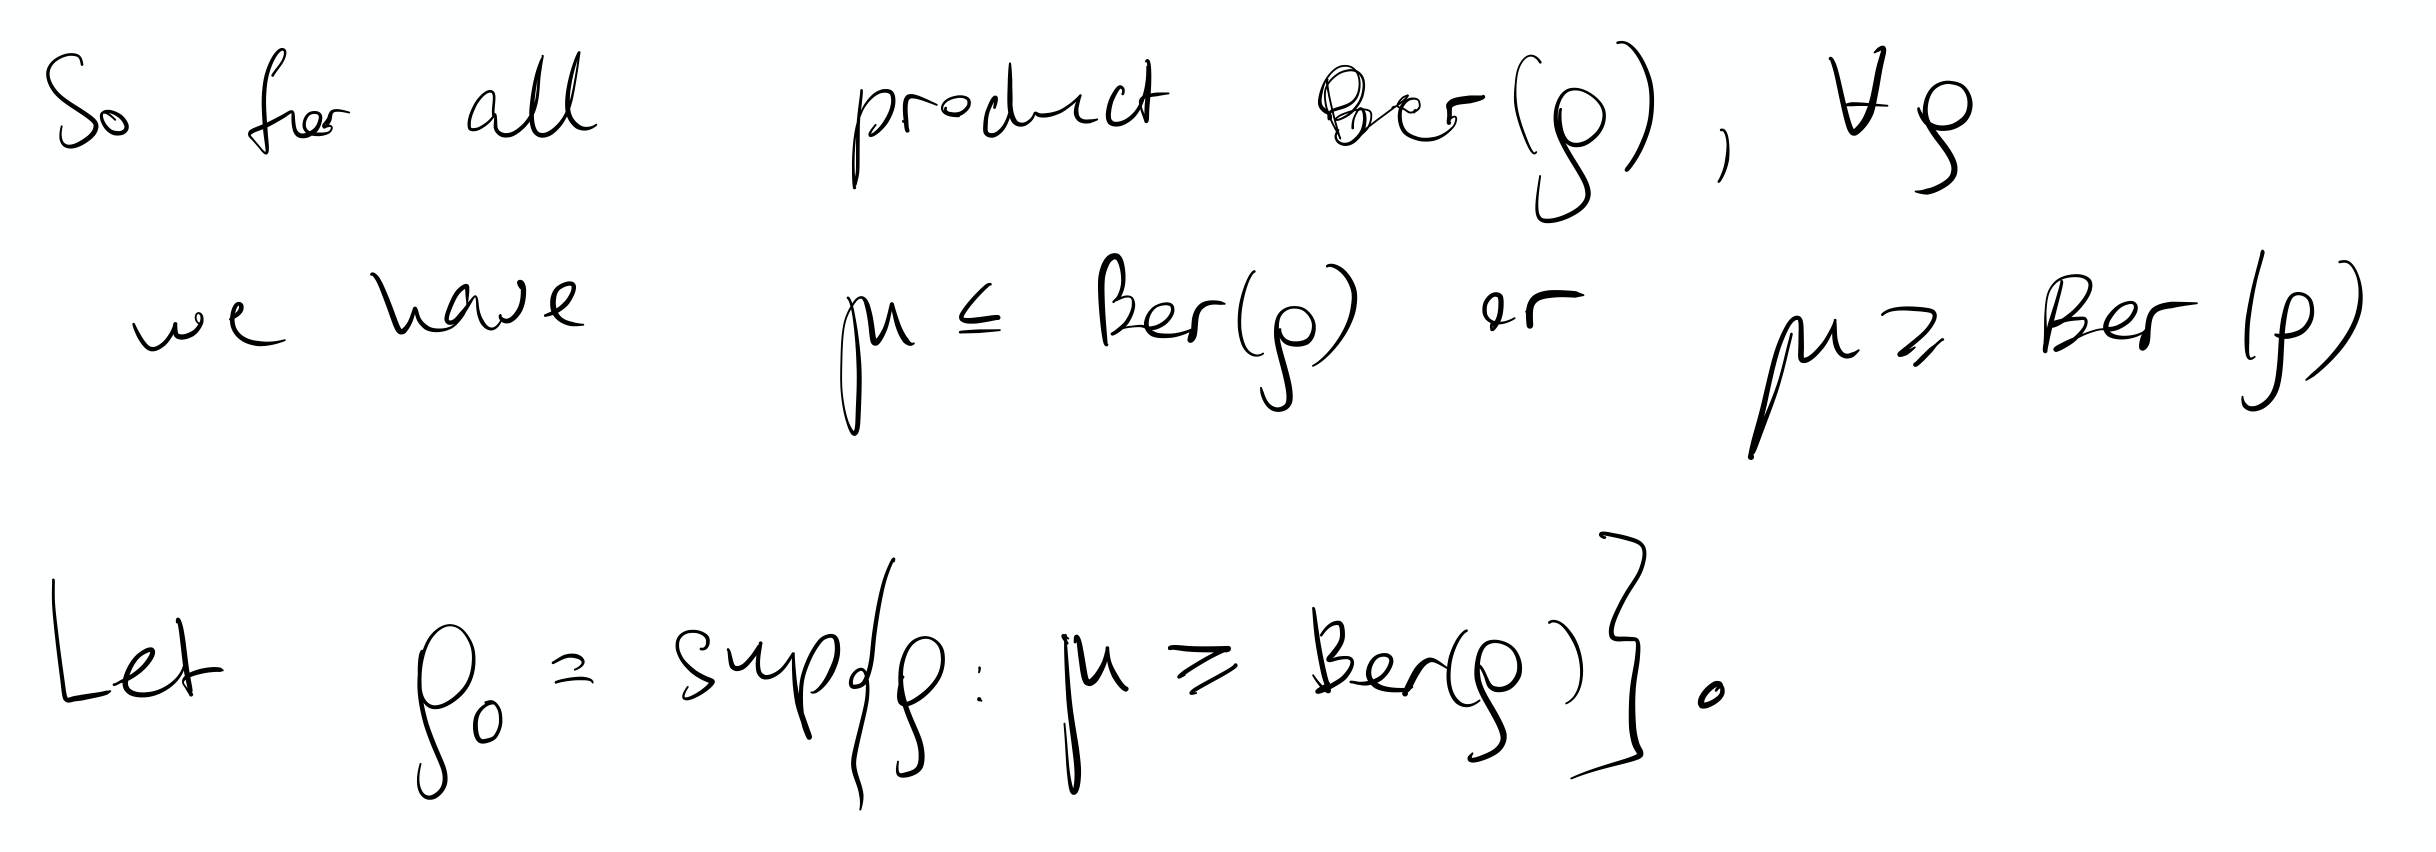 So for all product Ber(ρ), ∀ρ
we have μ ≤ Ber(ρ) or μ ⩾ Ber(ρ)
Let ρ₀ = sup{ρ: μ ⩾ Ber(ρ)}.